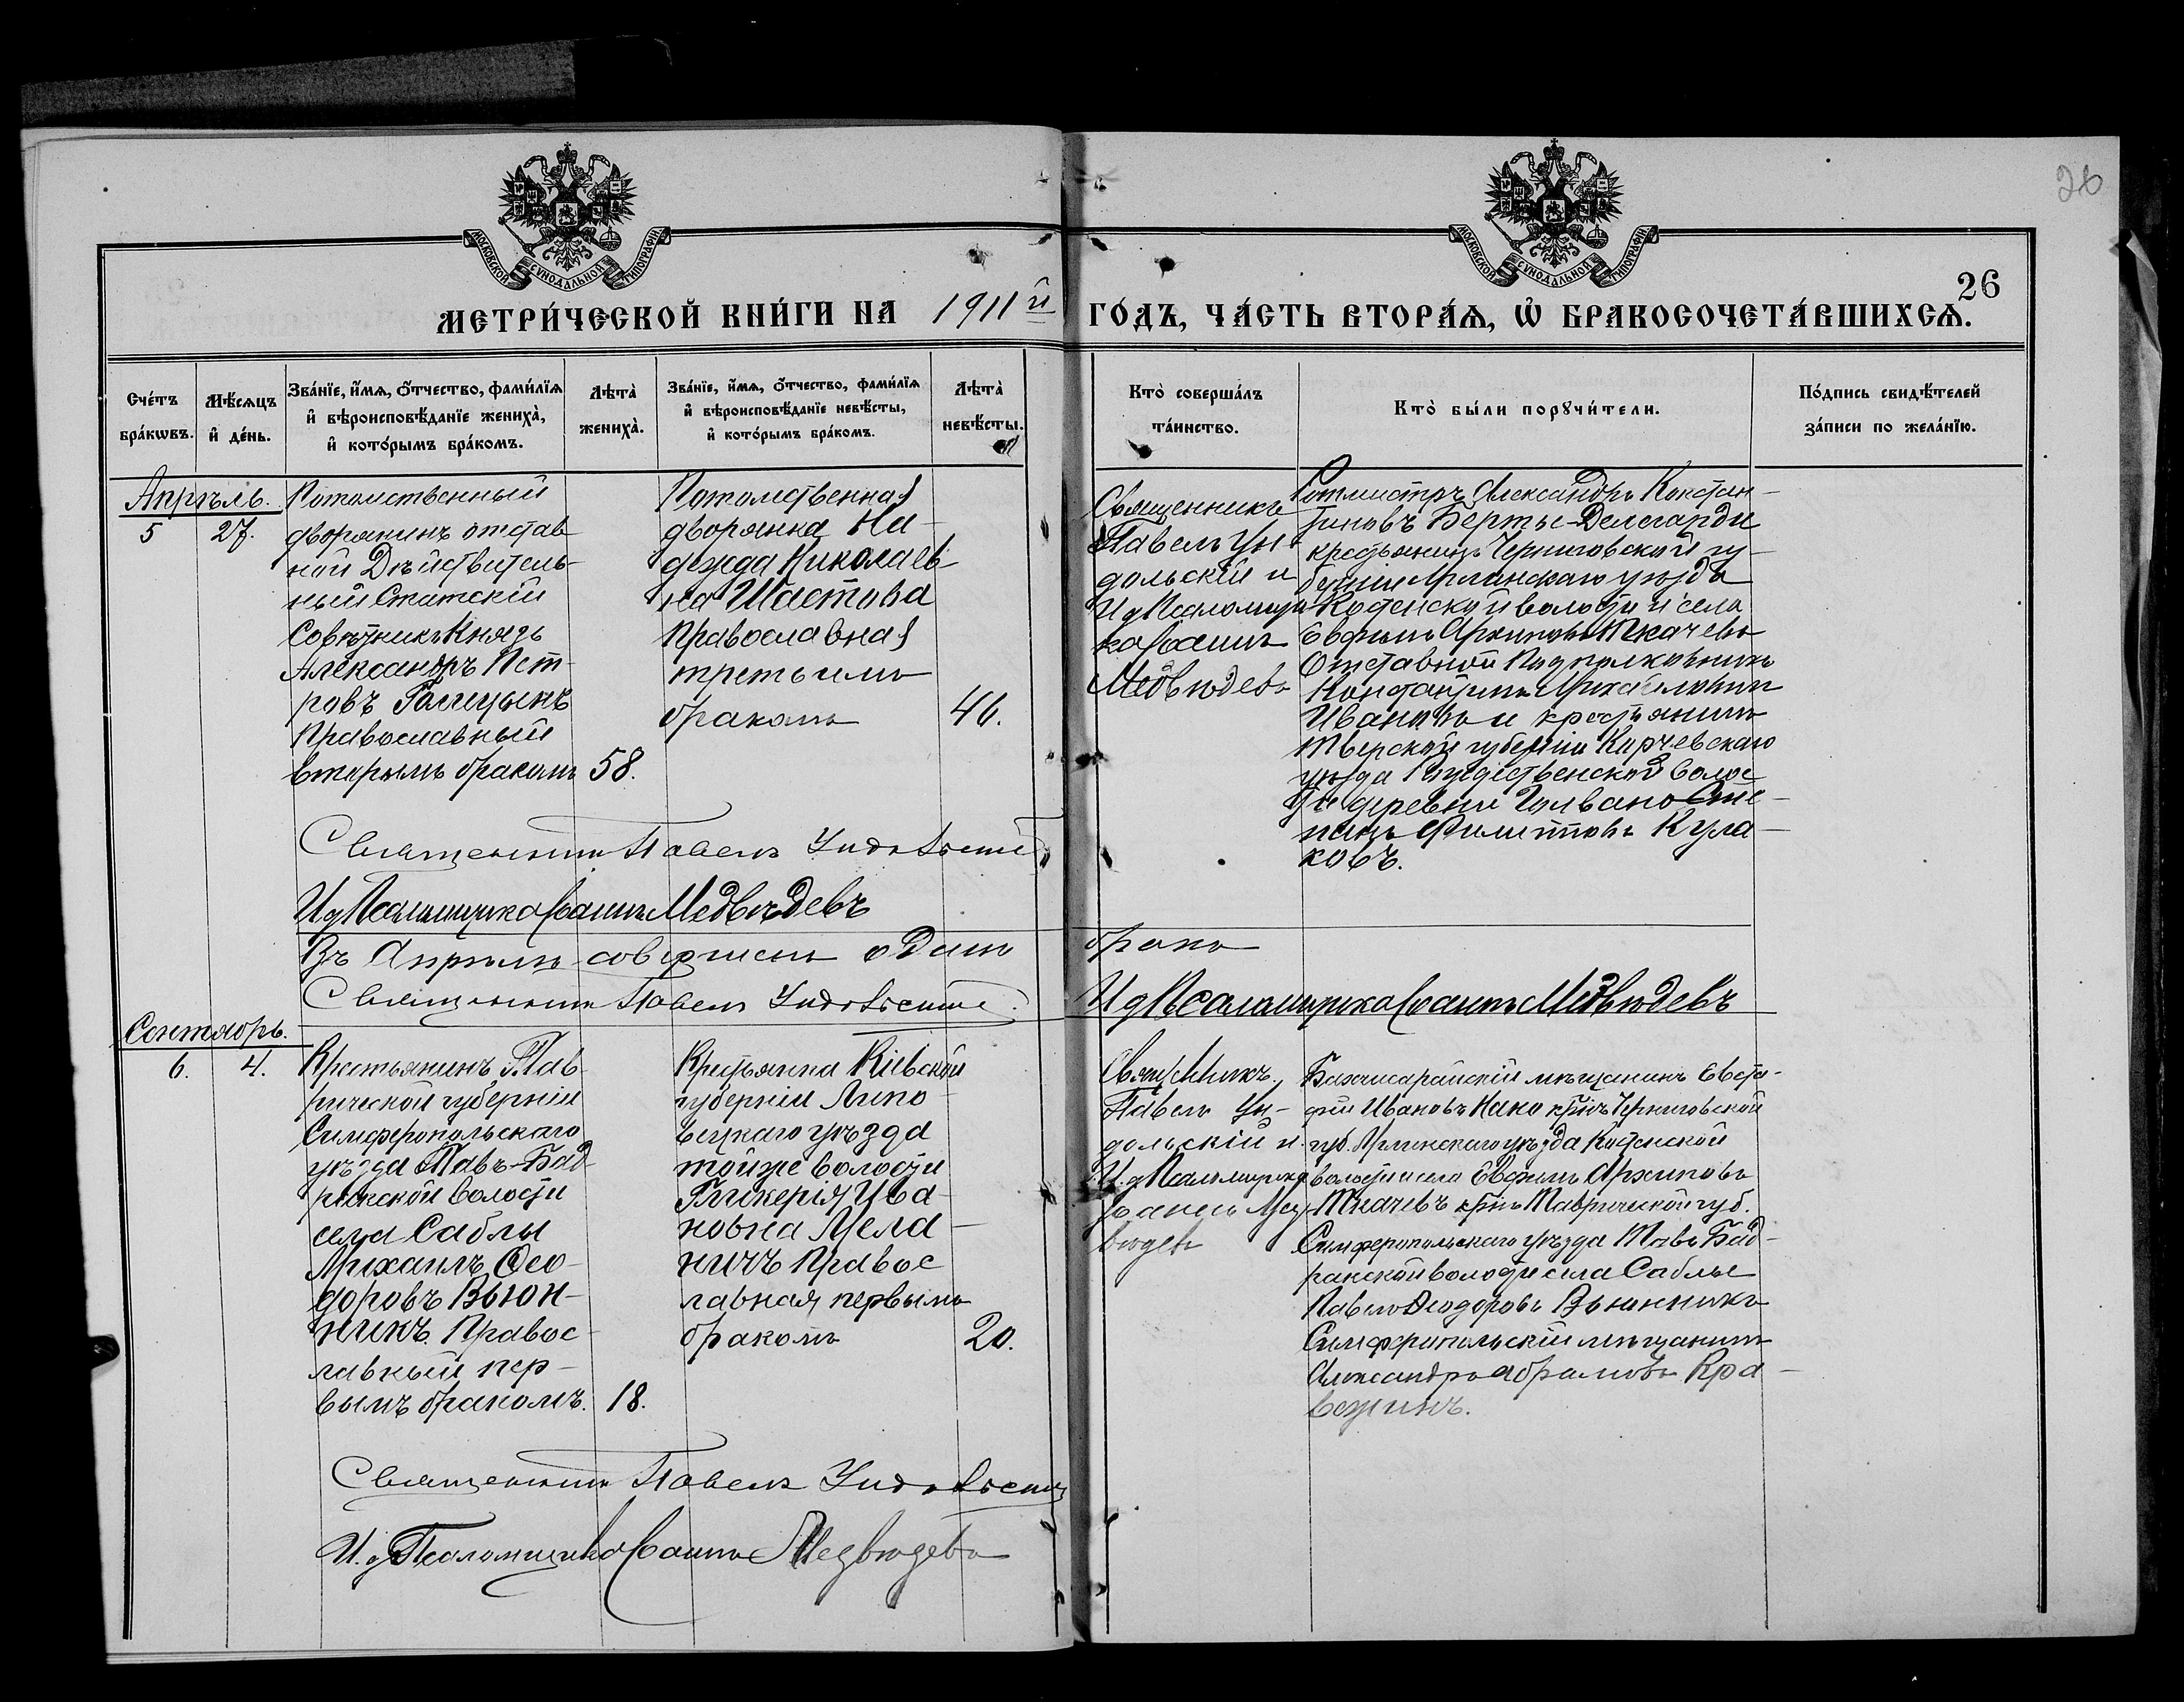 26
МОСКОВСКОЙ СУНОДАЛЬНОЙ ТИПОГРАФІИ
МОСКОВСКОЙ СУНОДАЛЬНОЙ ТИПОГРАФІИ
26
МЕТРИ́ЧЕСКОЙ КНИ́ГИ НА 1911й ГО́ДЪ, ЧА́СТЬ ВТОРА́Ѧ, Ѡ҆ БРАКОСОЧЕТА́ВШИХСѦ.
Сче́тъ бра́кѡвъ.
Мѣ́сѧцъ и҆ де́нь.
Зва́нїе, и҆́мѧ, ѻ҆́тчество, фами́лїѧ и҆ вѣроисповѣ́данїе жениха̀, и҆ кото́рымъ бра́комъ.
Лѣта̀ жениха̀.
Зва́нїе, и҆́мѧ, ѻ҆́тчество, фами́лїѧ и҆ вѣроисповѣ́данїе невѣ́сты, и҆ кото́рымъ бра́комъ.
Лѣта̀ невѣ́сты.
Кто̀ соверша́лъ та́инство.
Кто̀ бы́ли порꙋчи́тели.
По́дпись свидѣ́телей за́писи по жела́нїю.
Апрѣль.
5
27.
Потомственный
дворянинъ отстав
ной Дѣйствитель-
ный Статскій
Совѣтникъ Князь
Александръ Пет-
ровъ Голицынъ
Православный
вторымъ бракомъ
58.
Потомственная
дворянка На-
дежда Николаев-
на Шастова
Православная
третьимъ
бракомъ
46.
Священникъ
Павелъ Ун-
дольскій и
И д Псаломщи-
ка Іоаннъ
Медвѣдевъ
Ротмистръ Александръ Констан-
тиновъ Берты-Делагарди
крестьянинъ Черниговской гу-
берніи Мглинскаго уѣзда
Костенской волости и села
Евфимъ Архиповъ Ткачевъ
Отставной Подполковникъ
Константинъ Михайловичъ
Ивановъ и крестьянинъ
Тверской губерніи Корчевскаго
уѣзда Рождественской волос
ти деревни Голвано Сте-
панъ Филитовъ Кула-
ковъ.
Священникъ Павелъ Ундольскій
И д Псаломщика Іоаннъ Медвѣдевъ
Въ Апрѣлѣ совершенъ одинъ бракъ
Священникъ Павелъ Ундольскій.
И д Псаломщика Іоаннъ Медвѣдевъ
Сентябрь.
6.
4.
Крестьянинъ Тав-
рической губерніи
Симферопольскаго
уѣзда Тавъ-Бад-
ракской волости
села Саблы
Михаилъ Ѳео-
доровъ Вьюн-
никъ. Правос-
лавный пер-
вымъ бракомъ.
18.
Крестьянка Кіевской
губерніи Липо-
вецкаго уѣзда
тойже волости
Гликерія Ива-
новна Мела-
ничъ Правос
лавная первымъ
бракомъ
20.
Священникъ
Павелъ Ун-
дольскій и.
И. д Псаломщика
Іоаннъ Мед-
вѣдевъ
Бахчисарайскій мѣщанинъ Евста-
фій Ивановъ Како кр-нъ Черниговской
губ. Мглинскаго уѣзда Костенской
волости и села Евфимъ Архиповъ
Ткачевъ кр-нъ Таврической губ.
Симферопольскаго уѣзда Тавъ Бад-
ракской волости села Саблы
Павелъ Ѳеодоровъ Вьюнникъ
Симферопольскій мѣщанинъ
Александръ Абрамовъ Кра-
вежинъ.
Священникъ Павелъ Ундольскій
И. д Псаломщика Іоаннъ Медвѣдевъ